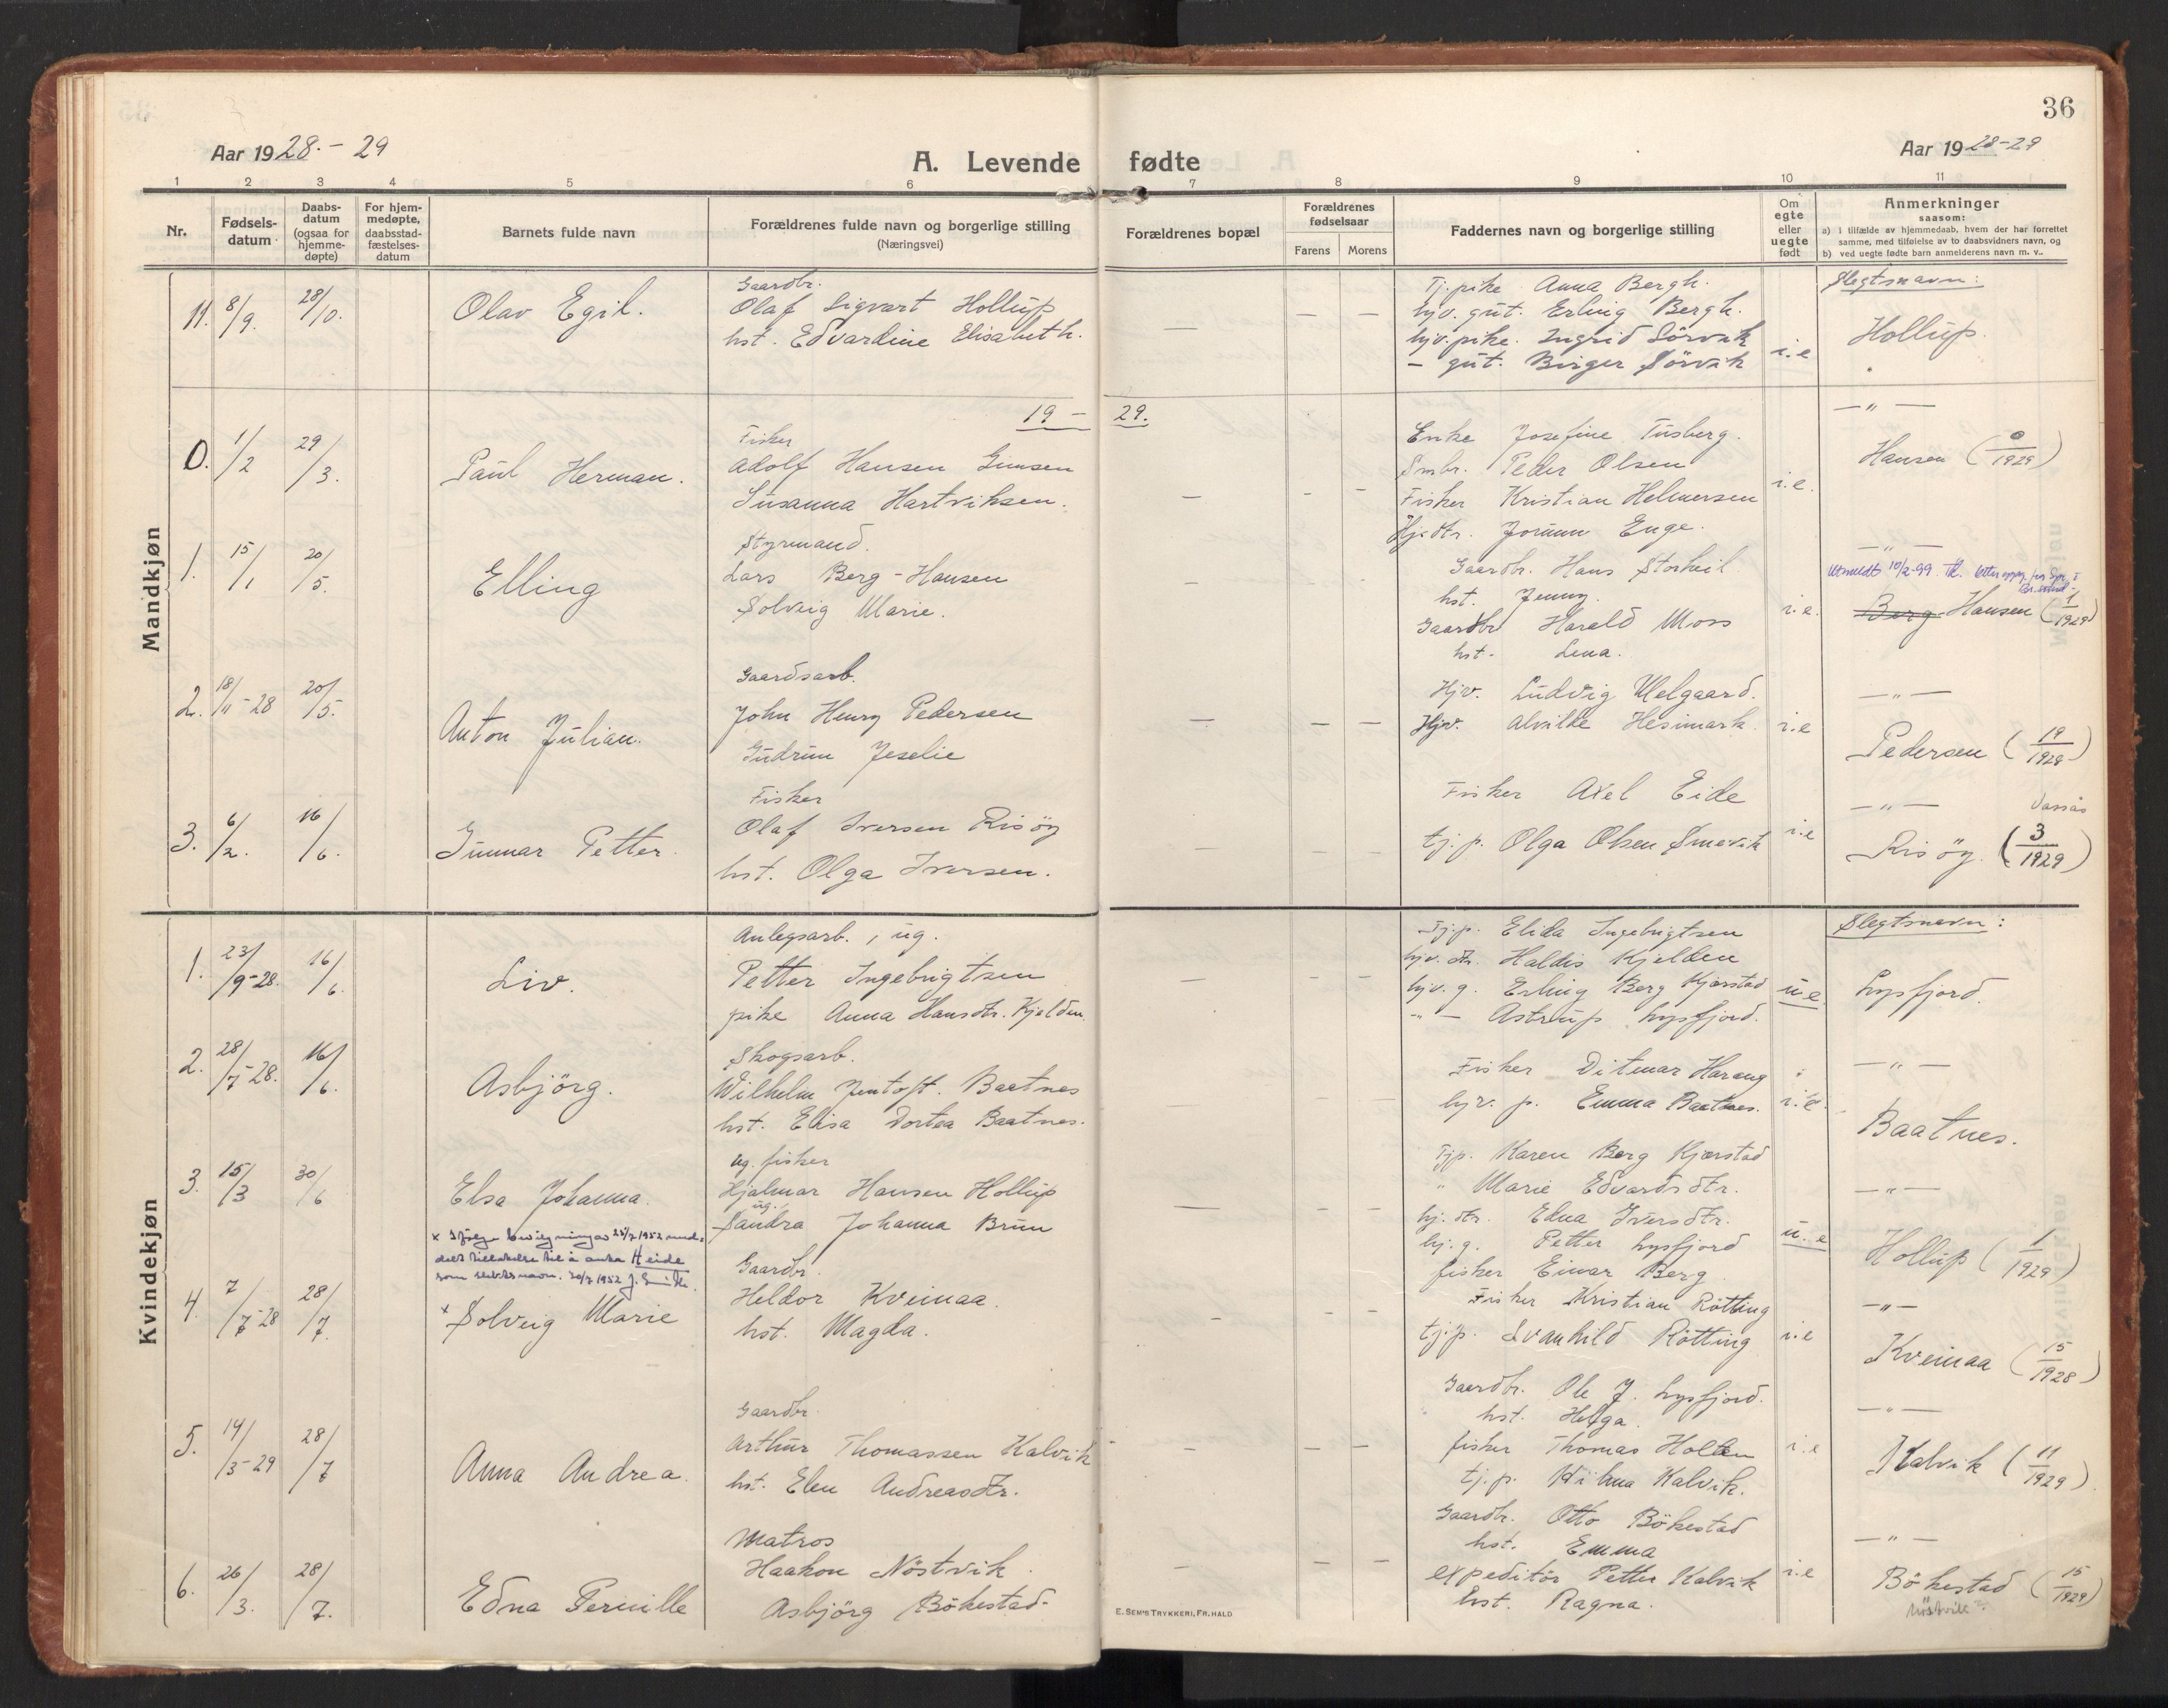 36
Aar 1928.-29
A. Levende fødte
Aar 1928-29
1 2 3 4 5 6 7 8 9 10 11
Nr.
Fødsels-datum
Daabs-datum (ogsaa for hjemme-døpte)
For hjem-medøpte, daabsstad-fæstelses-datum
Barnets fulde navn
Forældrenes fulde navn og borgerlige stilling
(Næringsvei)
Forældrenes bopæl
Forældrenes fødselsaar
Farens Morens
Faddernes navn og borgerlige stilling
Om egte eller uegte født
Anmerkninger
saasom:
a) i tilfælde av hjemmedaab, hvem der har forrettet samme, med tilføielse av to daabsvidners navn, og
b) ved uegte fødte barn anmelderens navn m. v..
Mandkjøn
11. 8/9. 28/10. Olav Egil.
Gaardbr.
Olaf Sigvart Hollup
hst. Edvardine Elisabeth.
— — —
Tj.pike Anna Bergh.
hjv. gut. Erling Bergh.
hjv.pike. Ingrid Sörvik
– gut. Birger Sörvik
i.e
Slegtsnavn:
Hollup.
19 – 29.
0. 1/2 29/3. Paul Herman.
Fisker
Adolf Hansen Simsen
Susanna Hartviksen.
— - —
Enke Josefine Tusberg.
Smbr. Peder Olsen
Fisker Kristian Helmersen
Hj.dtr. Jorunn Enge.
i.e.
— " —
Hansen (0/1929)
1. 15/1 20/5. Elling
Styrmand.
Lars Berg-Hansen
Solveig Marie.
— - -
Gaardbr. Hans Storheil
hst. Jenny.
Gaardbr Harald Moss
hst. Lena.
i.e.
— " —
Utmeldt 10/2-99
Berg-Hansen (1/1929)
2. 18/11-28 20/5. Anton Julian.
Gaardsarb.
John Henry Pedersen
Gudrun Jeselie
— — —
Hjv. Ludvig Melgaard.
Hjv. Alvilde Hesimark.
i.e
— " —
Pedersen (19/1928)
3. 6/2. 16/6. Gunnar Petter.
Fisker
Olaf Iversen Risöy
hst. Olga Iversen.
- — —
Fisker Axel Eide
tj.p. Olga Olsen Smevik
i.e
— " — Vassås
Risöy. (3/1929)
Kvindekjøn
1. 23/9-28. 16/6. Liv.
Anlegsarb., ug.
Petter Ingebrigtsen
pike Anna Hansdtr. Kjelden.
— - -
Tj.p. Elida Ingebrigtsen
hjv. dtr. Haldis Kjelden
hjv. g. Erling Berg Kjærstad
-"- Astrup Lysfjord.
u.e.
Slegtsnavn:
Lysfjord.
2. 28/7-28. 16/6. Asbjörg.
Skogsarb.
Wilhelm Jentoft. Baatnes
hst. Elisa Dortea Baatnes.
— - -
Fisker Ditmar Harang
hjv. p. Emma Baatnes.
i.e.
— " —
Baatnes.
3. 15/3 30/6 Elsa Johanna.
ug. fisker
Hjalmar Hansen Hollup
ug.
Sandra Johanna Brun
— — -
Tjp. Karen Berg Kjærstad
" Marie Edvardsdtr.
hj. dtr. Edna Iversdtr.
hj. g. Petter Lysfjord
fisker Einar Berg
u.e
— " —
Hollup (1/1929)
x Ifølge bevilgning av 25/7 1952 med-
delt tillatelse til å anta Heide
som slektsnavn. 30/7 1952
4. 7/7-28 28/7. x Solveig Marie
Gaardbr.
Heldor Kveinaa.
hst. Magda.
- - —
Fisher Kristian Rötting
tj.p. Svanhild Rötting
i.e
— " —
Kveinaa (15/1928)
5. 14/3-29 28/7 Anna Andrea.
Gaardbr.
Arthur Thomassen Kalvik
hst. Elen Andreasdtr.
- — —
Gaardbr. Ole J. Lysfjord.
hst. Helga.
fisher Thomas Holten
tj.p. Hilma Kalvik.
i.e
— " —
Kalvik (11/1929)
6. 26/3. 28/7. Edna Pernille
Matros
Haakon Nöstvik.
Asbjörg Bökestad-
- — —
Gaardbr. Otto Bökestad
hst. Emma
expeditör Petter Kalvik
hst. Ragna.
i.e
— " —
Bökestad (15/1929)
Nöstvik?
E. SEM'S TRYKKERI, FR.HALD